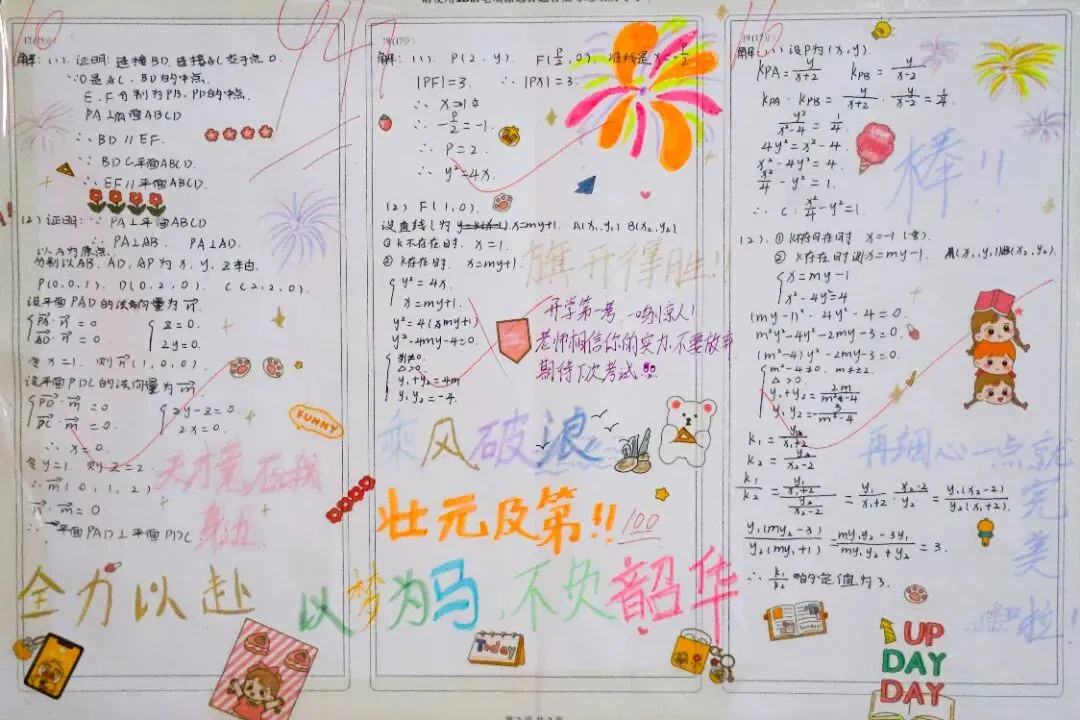 17(15分)
解:(1). 证明: 连接BD, 连接AC交于点O.
∵O是AC、BD的中点,
E、F分别为PB、PD的中点
PA⊥面ABCD
∴BD∥EF.
∵BD⊂平面ABCD.
∴EF∥平面ABCD.
(2)证明:∵PA⊥平面ABCD
∴PA⊥AB, PA⊥AD.
以A为原点.
分别以AB、AD、AP为x,y,z
P(0,0,1), D(0,2,0), C(2,2,0).
设平面PAD的法向量为n.
=0 z=0.
=0 2y=0.
令x=1, 则n(1,0,0)
设平面PDC的法向量为m.
PD·m=0 2y-z=0.
DC·m=0 2x=0.
∴x=0.
令y=1, 则z=2.
∴m(0,1,2)
n·m=0
∴平面PAD⊥平面PDC
天才竟在我
身边
全力以赴
18(17分)
解:(1). P(2,y). F(p/2,0), 准线是x=-p/2
|PF|=3. ∴|PX|=3.
∴-p/2=-1.
∴P=2.
∴y²=4x.
(2) F(1,0).
设直线l为 x=my+1. A(x₁,y₁) B(x₂,y₂)
①k不存在时. x=1.
②k存在时. x=my+1.
y²=4x
x=my+1.
y²=4(my+1)
y²-4my-4=0.
△>0
y₁+y₂=4m
y₁y₂=-4.
旗开得胜!!
开学第一考,一鸣惊人!
老师相信你的实力,不要放弃
期待下次考试
FUNNY
乘风破浪
壮元及第!!
100
以梦为马,不负韶华
Today
19(17分)
解:(1)设P为(x,y).
kPA=y/(x+2) kPB=y/(x-2)
kPA·kPB=y/(x+2)·y/(x-2)=1/4.
y²/(x²-4)=1/4.
4y²=x²-4.
x²-4y²=4.
x²/4-y²=1.
∴C:x²/4-y²=1.
LOVE
棒!!
(2).①k不存在时 x=-1(舍).
②k存在时 设x=my-1. A(x₁,y₁)B(x₂,y₂).
x=my-1
x²-4y²=4
(my-1)²-4y²-4=0.
m²y²-4y²-2my-3=0.
(m²-4)y²-2my-3=0.
m²-4≠0. m≠±2.
△>0
y₁+y₂=2m/(m²-4)
y₁y₂=-3/(m²-4)
k₁=y₁/(x₁+2)
k₂=y₂/(x₂-2)
k₁/k₂=(y₁/(x₁+2))/(y₂/(x₂-2))=y₁/(x₁+2)·(x₂-2)/y₂=y₁(x₂-2)/y₂(x₁+2).
y₁(my₂-3)/y₂(my₁+1)=(my₁y₂-3y₁)/(my₁y₂+y₂)=3.
∴k₁/k₂的定值为3.
再细心一点就
完
美
啦!
UP
DAY
DAY